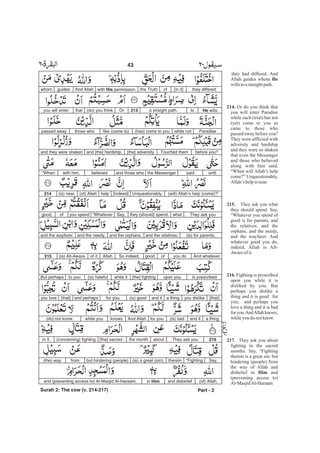 البقرة-٢
43
سيقول-٢
they differed
[in it]
of
the Truth
with His permission.
And Allah
guides
whom
He wills
to
a straight path.
213
Or
(do) you think
that
you will enter
Paradise
while not
(has) come to you
like (came to)
those who
passed away
before you?
Touched them
[the] adversity
and [the] hardship,
and they were shaken
until
said
the Messenger
and those who
believed
with him,
"When
(will) Allah's help (come)?"
Unquestionably,
[Indeed]
help
(of) Allah
(is) near.
214
They ask you
what
they (should) spend.
Say,
"Whatever
you spend
of
good,
(is) for parents,
and the relatives,
and the orphans,
and the needy,
and the wayfarer.
And whatever
you do
of
good.
So indeed,
Allah
of it
(is) All-Aware.
215
Is prescribed
upon you
[the] fighting
while it
(is) hateful
to you.
But perhaps
[that]
you dislike
a thing
and it
(is) good
for you;
and perhaps
[that]
you love
a thing
and it
(is) bad
for you.
And Allah
knows
while you
(do) not know.
216
They ask you
about
the month
[the] sacred
(concerning) fighting
in it.
Say,
"Fighting
therein
(is) a great (sin);
but hindering (people)
from
(the) way
(of) Allah,
and disbelief
in Him
and (preventing access to) Al-Masjid Al-Haraam,
they had differed. And
Allah guides whom He
wills to a straight path.
214. Or do you think that
you will enter Paradise
while such (trial) has not
(yet) come to you as
came to those who
passed away before you?
They were afflicted with
adversity and hardship
and they were so shaken
that even the Messenger
and those who believed
along with him said,
"When will Allah's help
come?" Unquestionably,
Allah's help is near.
215. They ask you what
they should spend. Say,
"Whatever you spend of
good is for parents, and
the relatives, and the
orphans, and the needy,
and the wayfarer. And
whatever good you do,
indeed, Allah is All-
Aware of it.
216. Fighting is prescribed
upon you while it is
disliked by you. But
perhaps you dislike a
thing and it is good for
you; and perhaps you
love a thing and it is bad
for you. And Allah knows,
while you do not know.
217. They ask you about
fighting in the sacred
months. Say, "Fighting
therein is a great sin; but
hindering (people) from
the way of Allah and
disbelief in Him and
(preventing access to)
Al-Masjid Al-Haraam
Surah 2: The cow (v. 214-217)
Part - 2